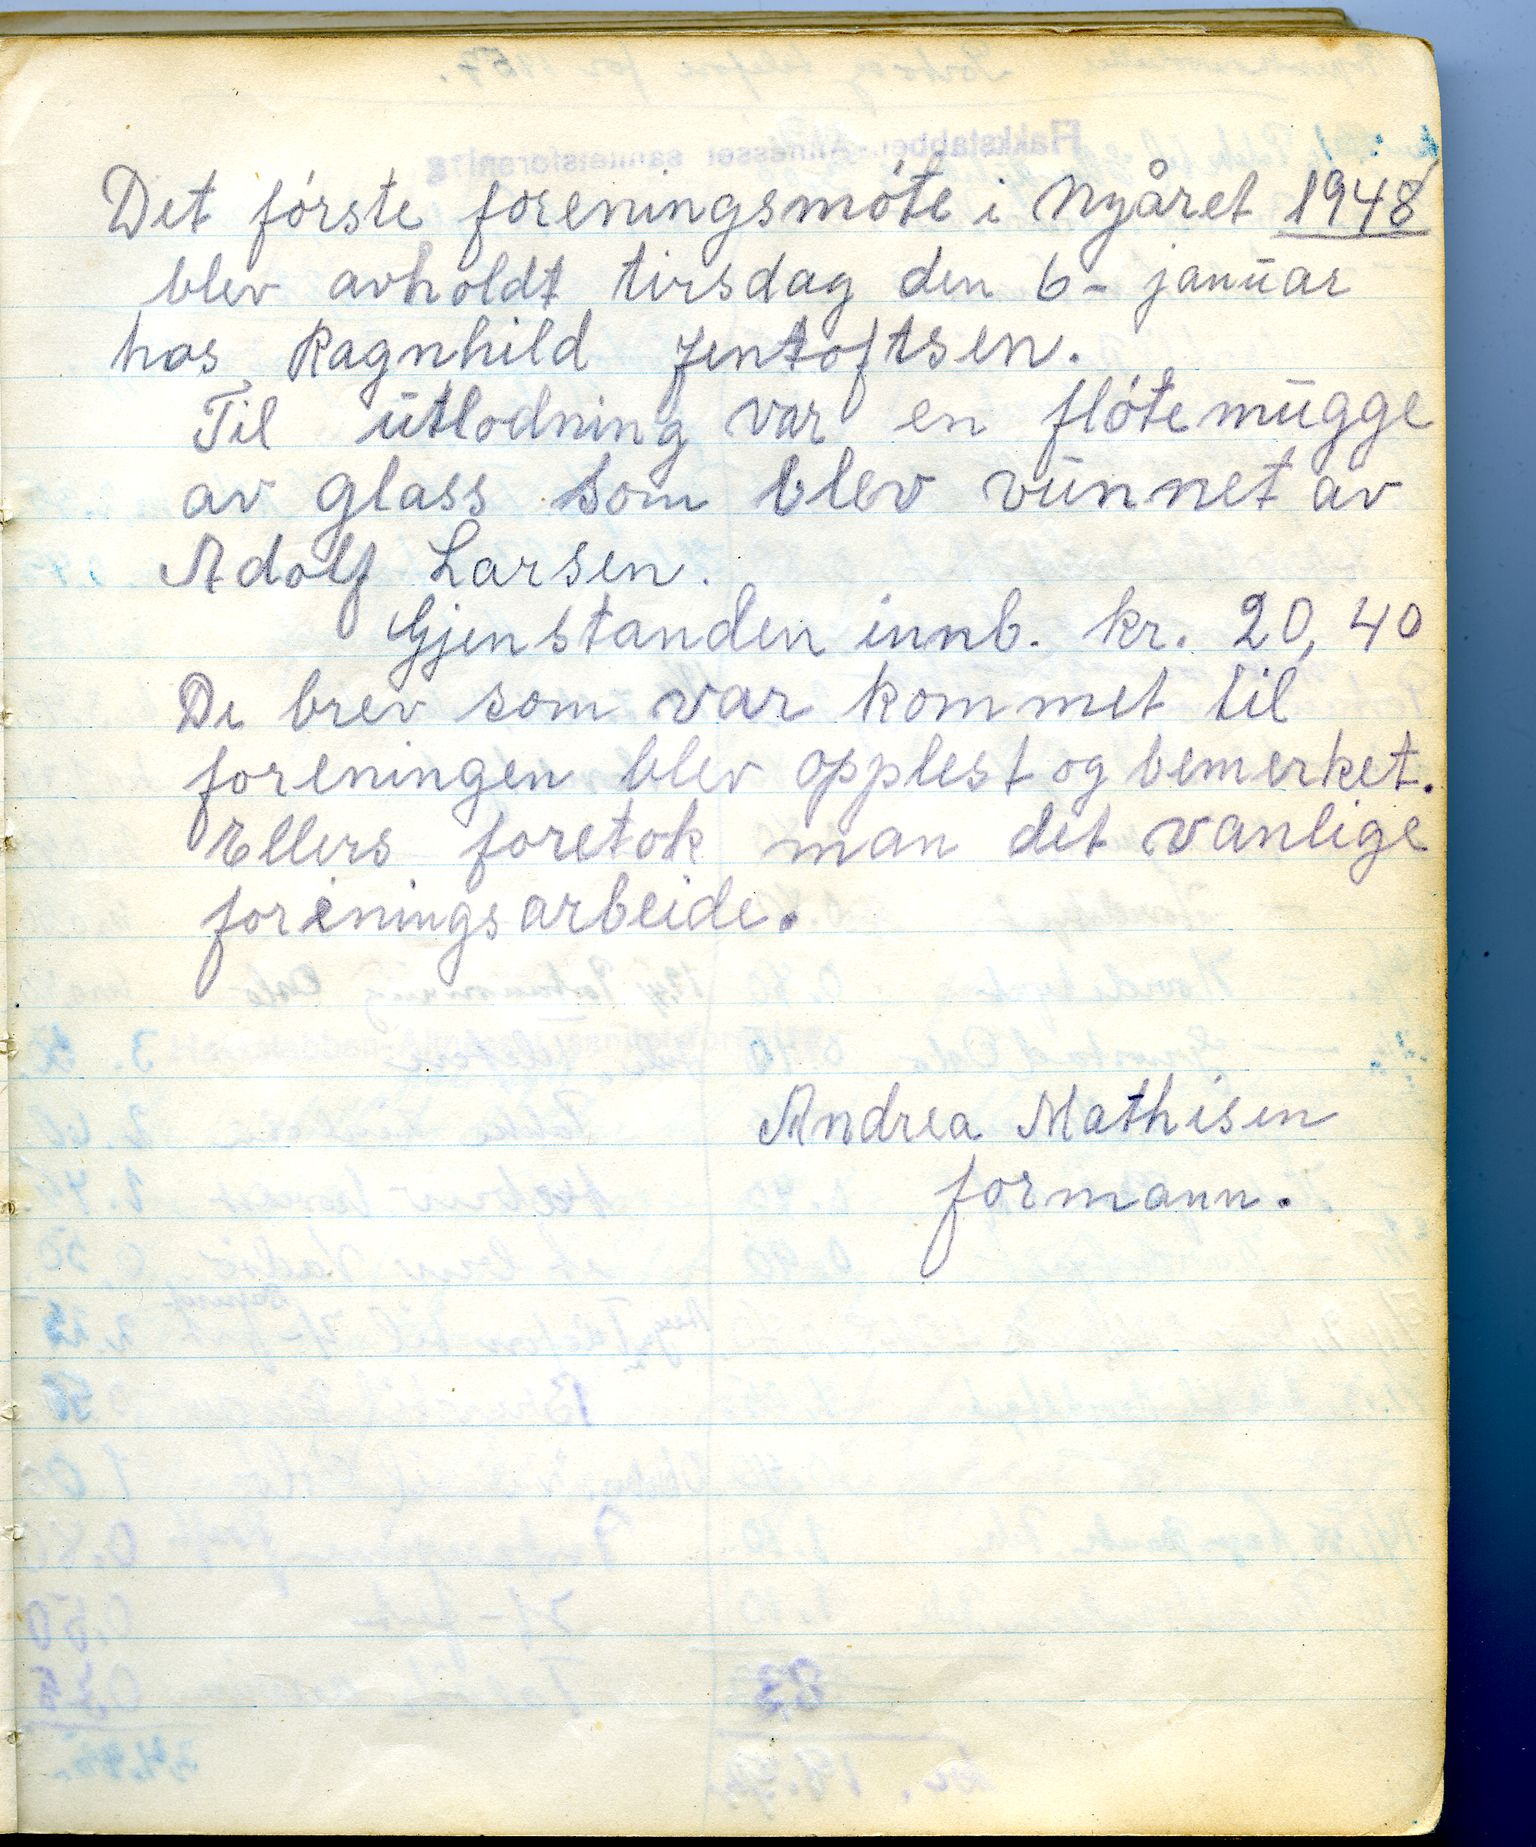 Det første foreningsmøte i Nyåret 1948
blev avholdt tirsdag den 6- januar
hos Ragnhild Jentoftsen.
Til utlodning var en fløtemugge
av glass som blev vunnet av
Adolf Larsen.
Gjenstanden innb. kr. 20,40
De brev som var kommet til
foreningen blev opplest og bemerket.
Ellers foretok man det vanlige
foreningsarbeide.
Andrea Mathisen
formann.